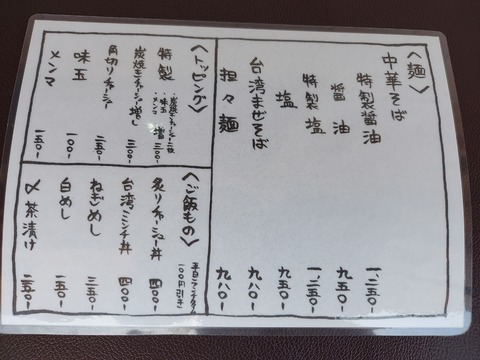 〈麺〉
中華そば
特製醤油 一、二五〇-
醤油 九五〇-
特製塩 一、二五〇-
塩 九五〇-
台湾まぜそば 九八〇-
担々麺 九八〇-
〈トッピング〉
特製 ・炭焼チャーシュー二枚 ・味玉 ・メンマ 増 三〇〇-
炭焼チャーシュー増し 三〇〇-
角切りチャーシュー 二五〇-
味玉 一〇〇-
メンマ 一五〇-
〈ご飯もの〉
平日ランチタイム
100円引き
炙りチャーシュー丼 四〇〇-
台湾ミンチ丼 四〇〇-
ねぎめし 三五〇-
白めし 一五〇-
〆茶漬け 二五〇-